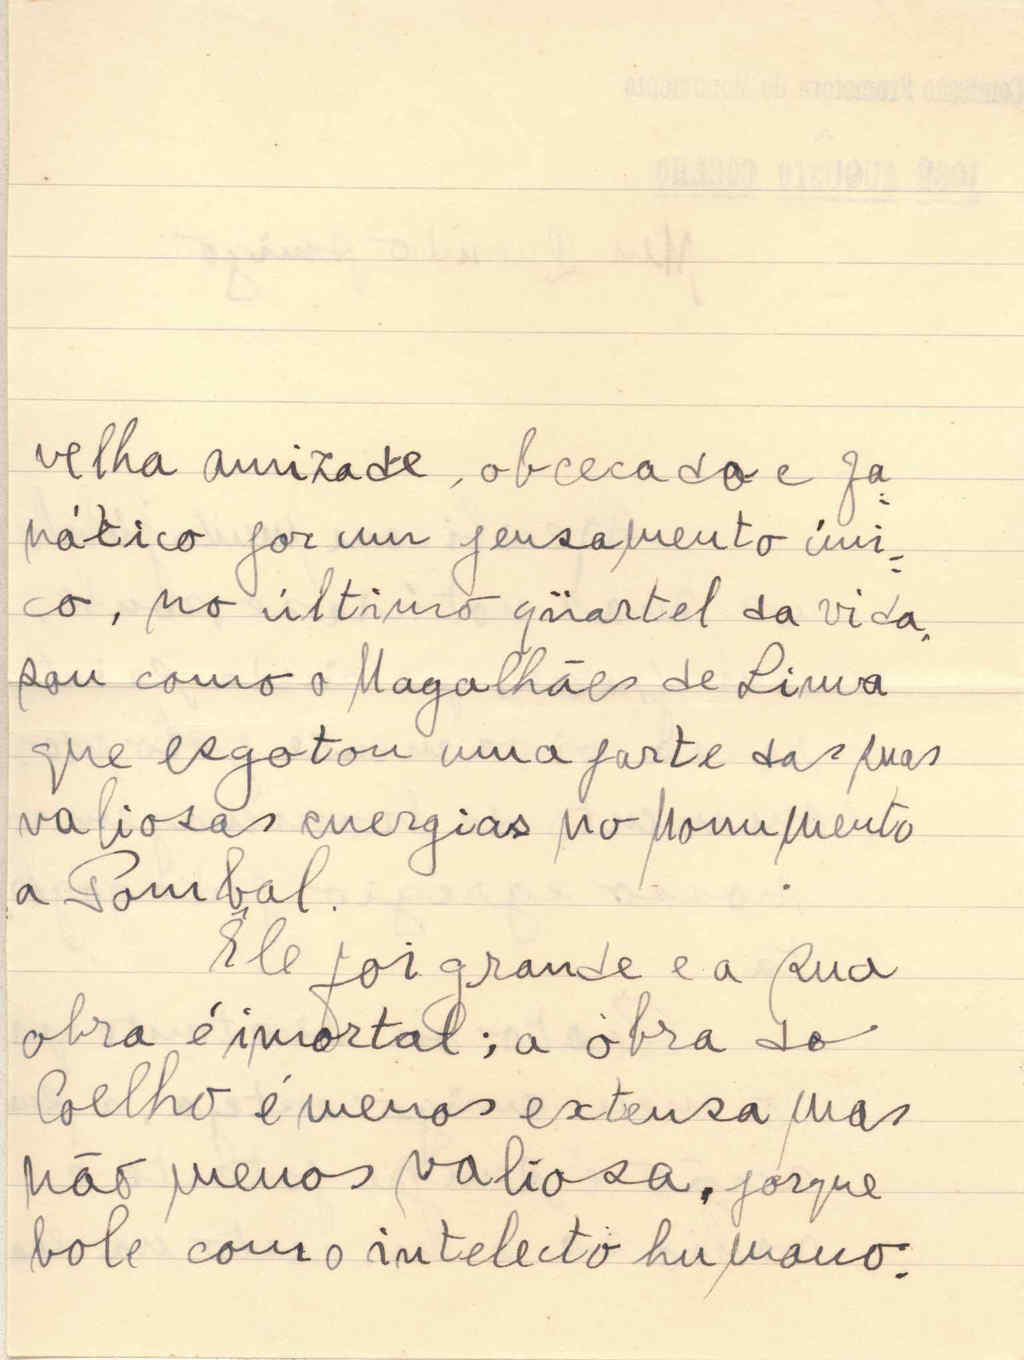 velha amizade, obcecado e fa=
nático por um pensamento úni=
co, no último qüartel da vida,
sou como o Magalhães de Lima
que esgotou uma parte das suas
valiosas energias no Monumento
a Pombal.
Êle foi grande e a sua
obra é imortal; a obra do
Coelho é menos extensa mas
não menos valiosa, porque
bole com o intelecto humano: